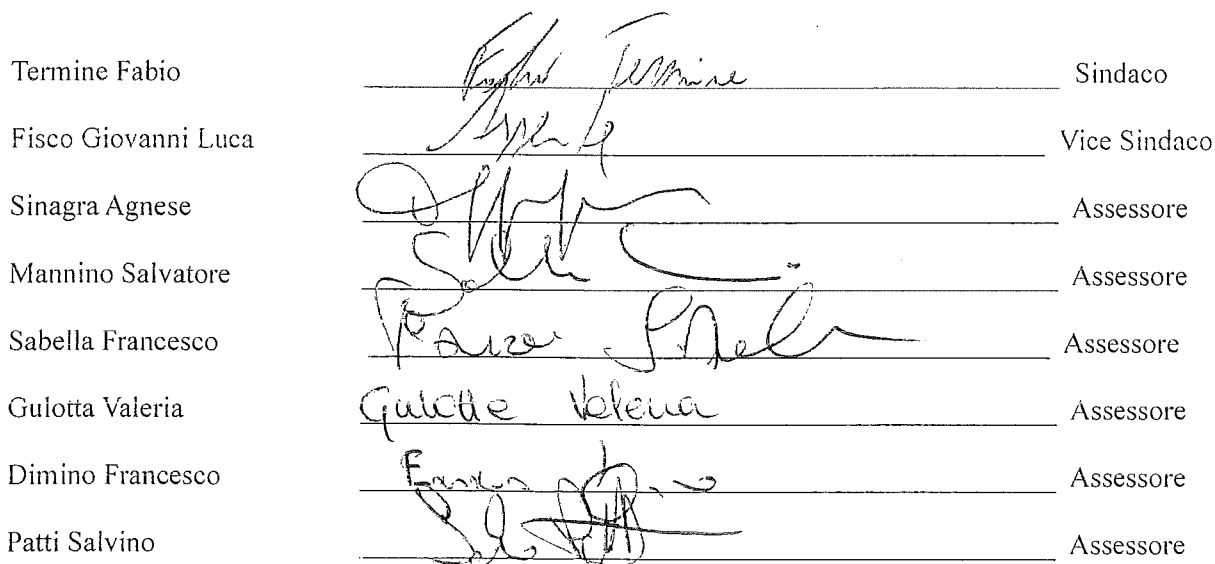 Termine Fabio Fabio Termine Sindaco
Fisco Giovanni Luca Assente Vice Sindaco
Sinagra Agnese Assessore
Mannino Salvatore Assessore
Sabella Francesco Assessore
Gulotta Valeria Gulotta Valeria Assessore
Dimino Francesco Assessore
Patti Salvino Assessore